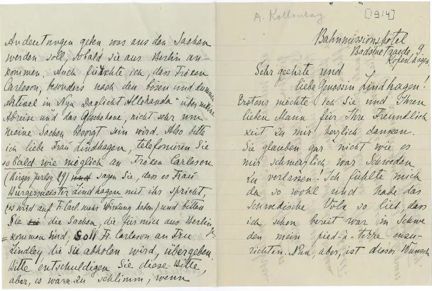 A. Kollontay
[1914]
Bahnmissionshotel
Badstuestraede, 9.
Kopenhagen
Sehr geehrte und
liebe Genossin Lindhagen!
Erstens möchte ich Sie und Ihren
lieben Mann für Ihre Freundlich
keit zu mir herzlich danken.
Sie glauben gar nicht wie es
mir schmerzlich war Schweden
zu verlassen! Ich fühlte mich
da so wohl und habe das
schwedische Volk so lieb, dass
ich schon bereit war in Schwe
den mein pied-à-terre einzu-
richten. Nun, aber, ist dieser Wunsch
Andeutungen geben was aus den Sachen
werden soll, sobald sie aus Berlin an-
kommen. Auch fürchte ich, dass Fräulein
Carlsson, besonders nach den bösen und dummen
Artikel in Nya Dagligt Allehanda über meine
Abreise und das nicht mehr um
meine Sachen besorgt sein wird. Also bitte
ich liebe Frau Lindhagen, telefonieren Sie
so bald wie möglich an Fräulein Carlsson
und sagen Sie, dass es Frau
Bürgermeister Lindhagen mit ihr spricht,
und bitten
Sie die Sachen, die für mich aus Berlin
kommen sind, soll Fr. Carlsson an Frau
Lindley die sie abholen wird, übergeben.
Bitte entschuldigen Sie diese Bitte,
aber, es wäre zu schlimm, wenn